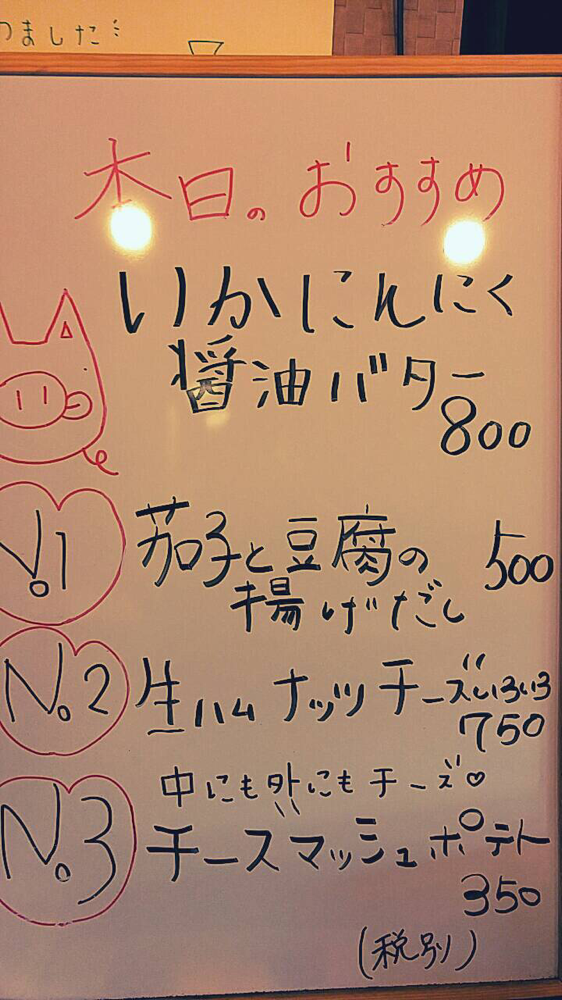 ました
本日のおすすめ
いかにんにく
醤油バター
800
No.1
茄子と豆腐の 500
揚げだし
No.2
生ハムナッツチーズいろいろ
750
中にも外にもチーズ♡
No.3
チーズマッシュポテト
350
(税別)